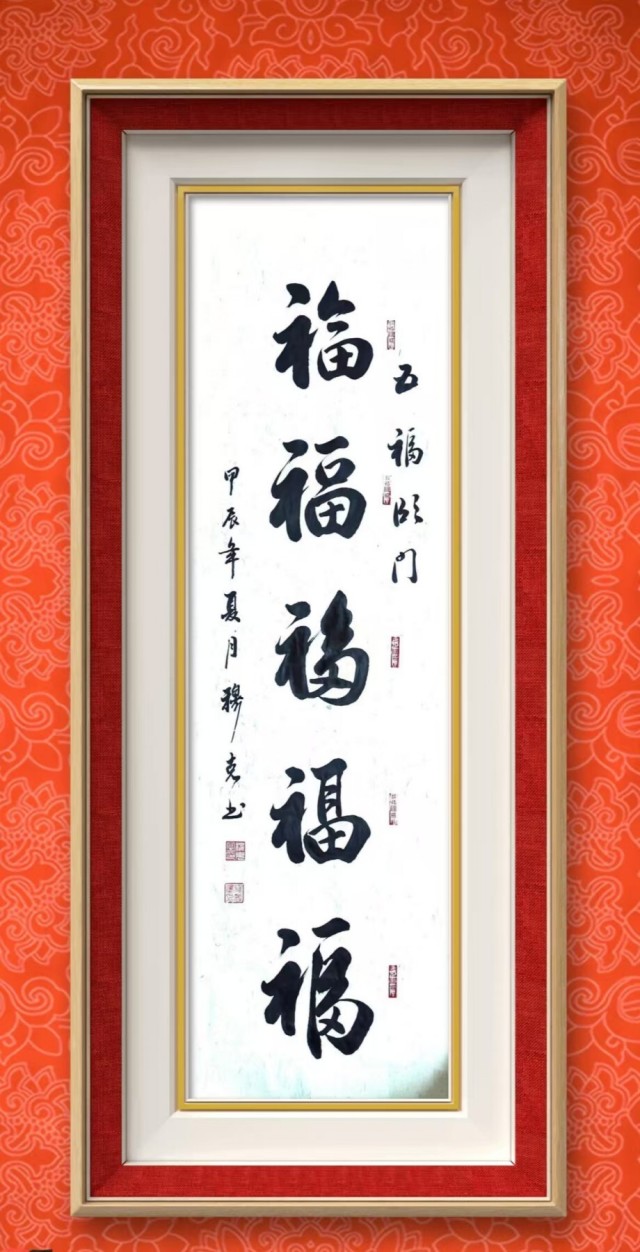 五福临门
福福福福福
甲辰年夏月穆克书